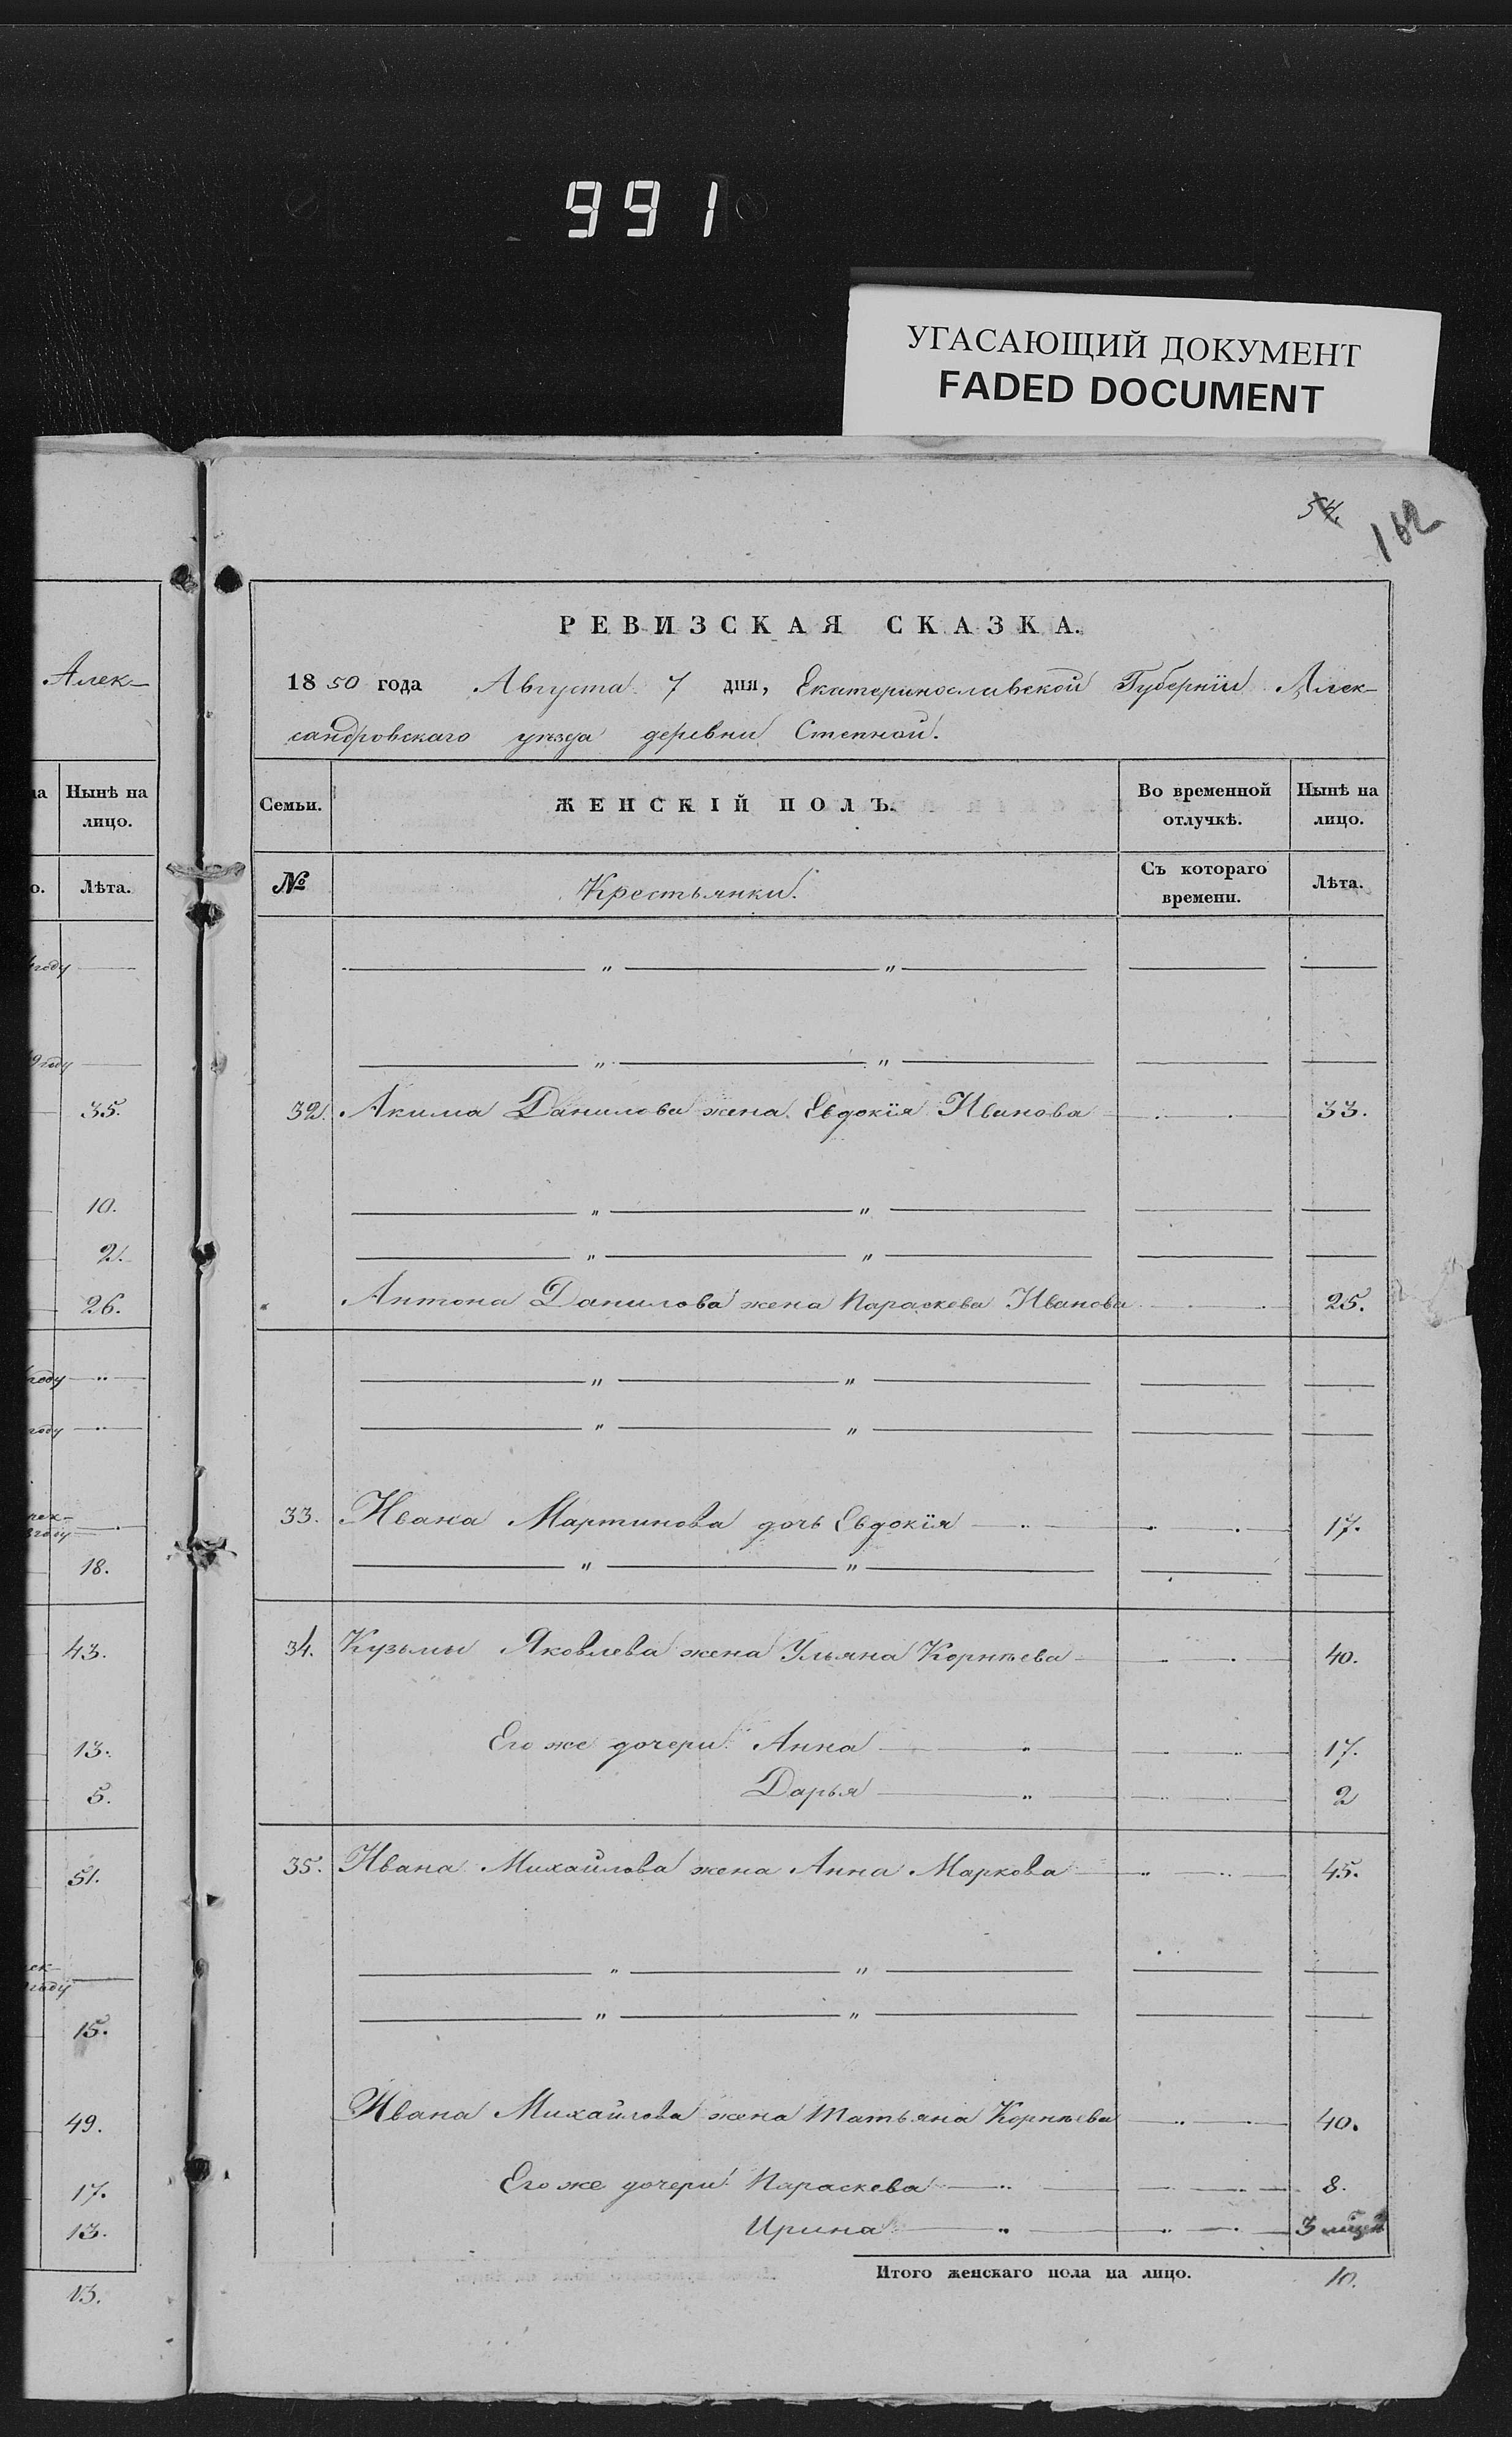 991
УГАСАЮЩИЙ ДОКУМЕНТ
FADED DOCUMENT
54.
162
Алек-
Нынѣ на
лицо.
Лѣта.
году
9 году
35.
10.
2.
26.
году
году
году
18.
43.
13.
5.
51.
году
15.
49.
17.
13.
13.
РЕВИЗСКАЯ СКАЗКА.
1850 года Августа 7 дня, Екатеринославской Губернїи Алек-
сандровскаго уѣзда деревни Степной.
Семьи. ЖЕНСКІЙ ПОЛЪ. Во временной отлучкѣ. Нынѣ на лицо.
№ Крестьянки. Съ котораго времени. Лѣта.
32. Акима Данилова жена Евдокїя Иванова 33.
Антона Данилова жена Параскева Иванова 25.
33. Ивана Мартинова дочь Евдокїя 17.
34. Кузьмы Яковлева жена Ульяна Корнѣева 40.
Его же дочери Анна 17.
Дарья 2
35. Ивана Михайлова жена Анна Маркова 45.
Ивана Михайлова жена Татьяна Корнѣева 40.
Его же дочери Параскева 8.
Ирина 3
Итого женскаго пола на лицо. 10.